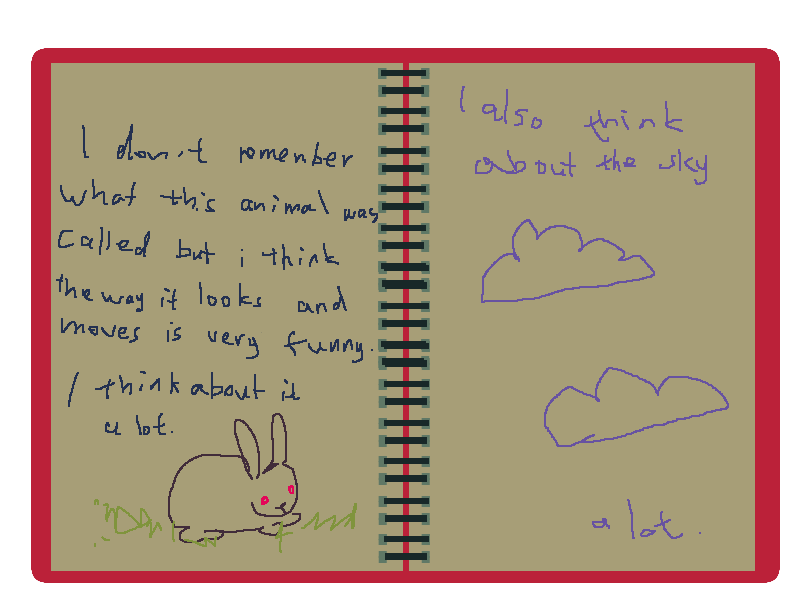 I don't remember
what this animal was
called but i think
the way it looks and
moves is very funny.
I think about it
a lot.
I also think
about the sky
a lot.